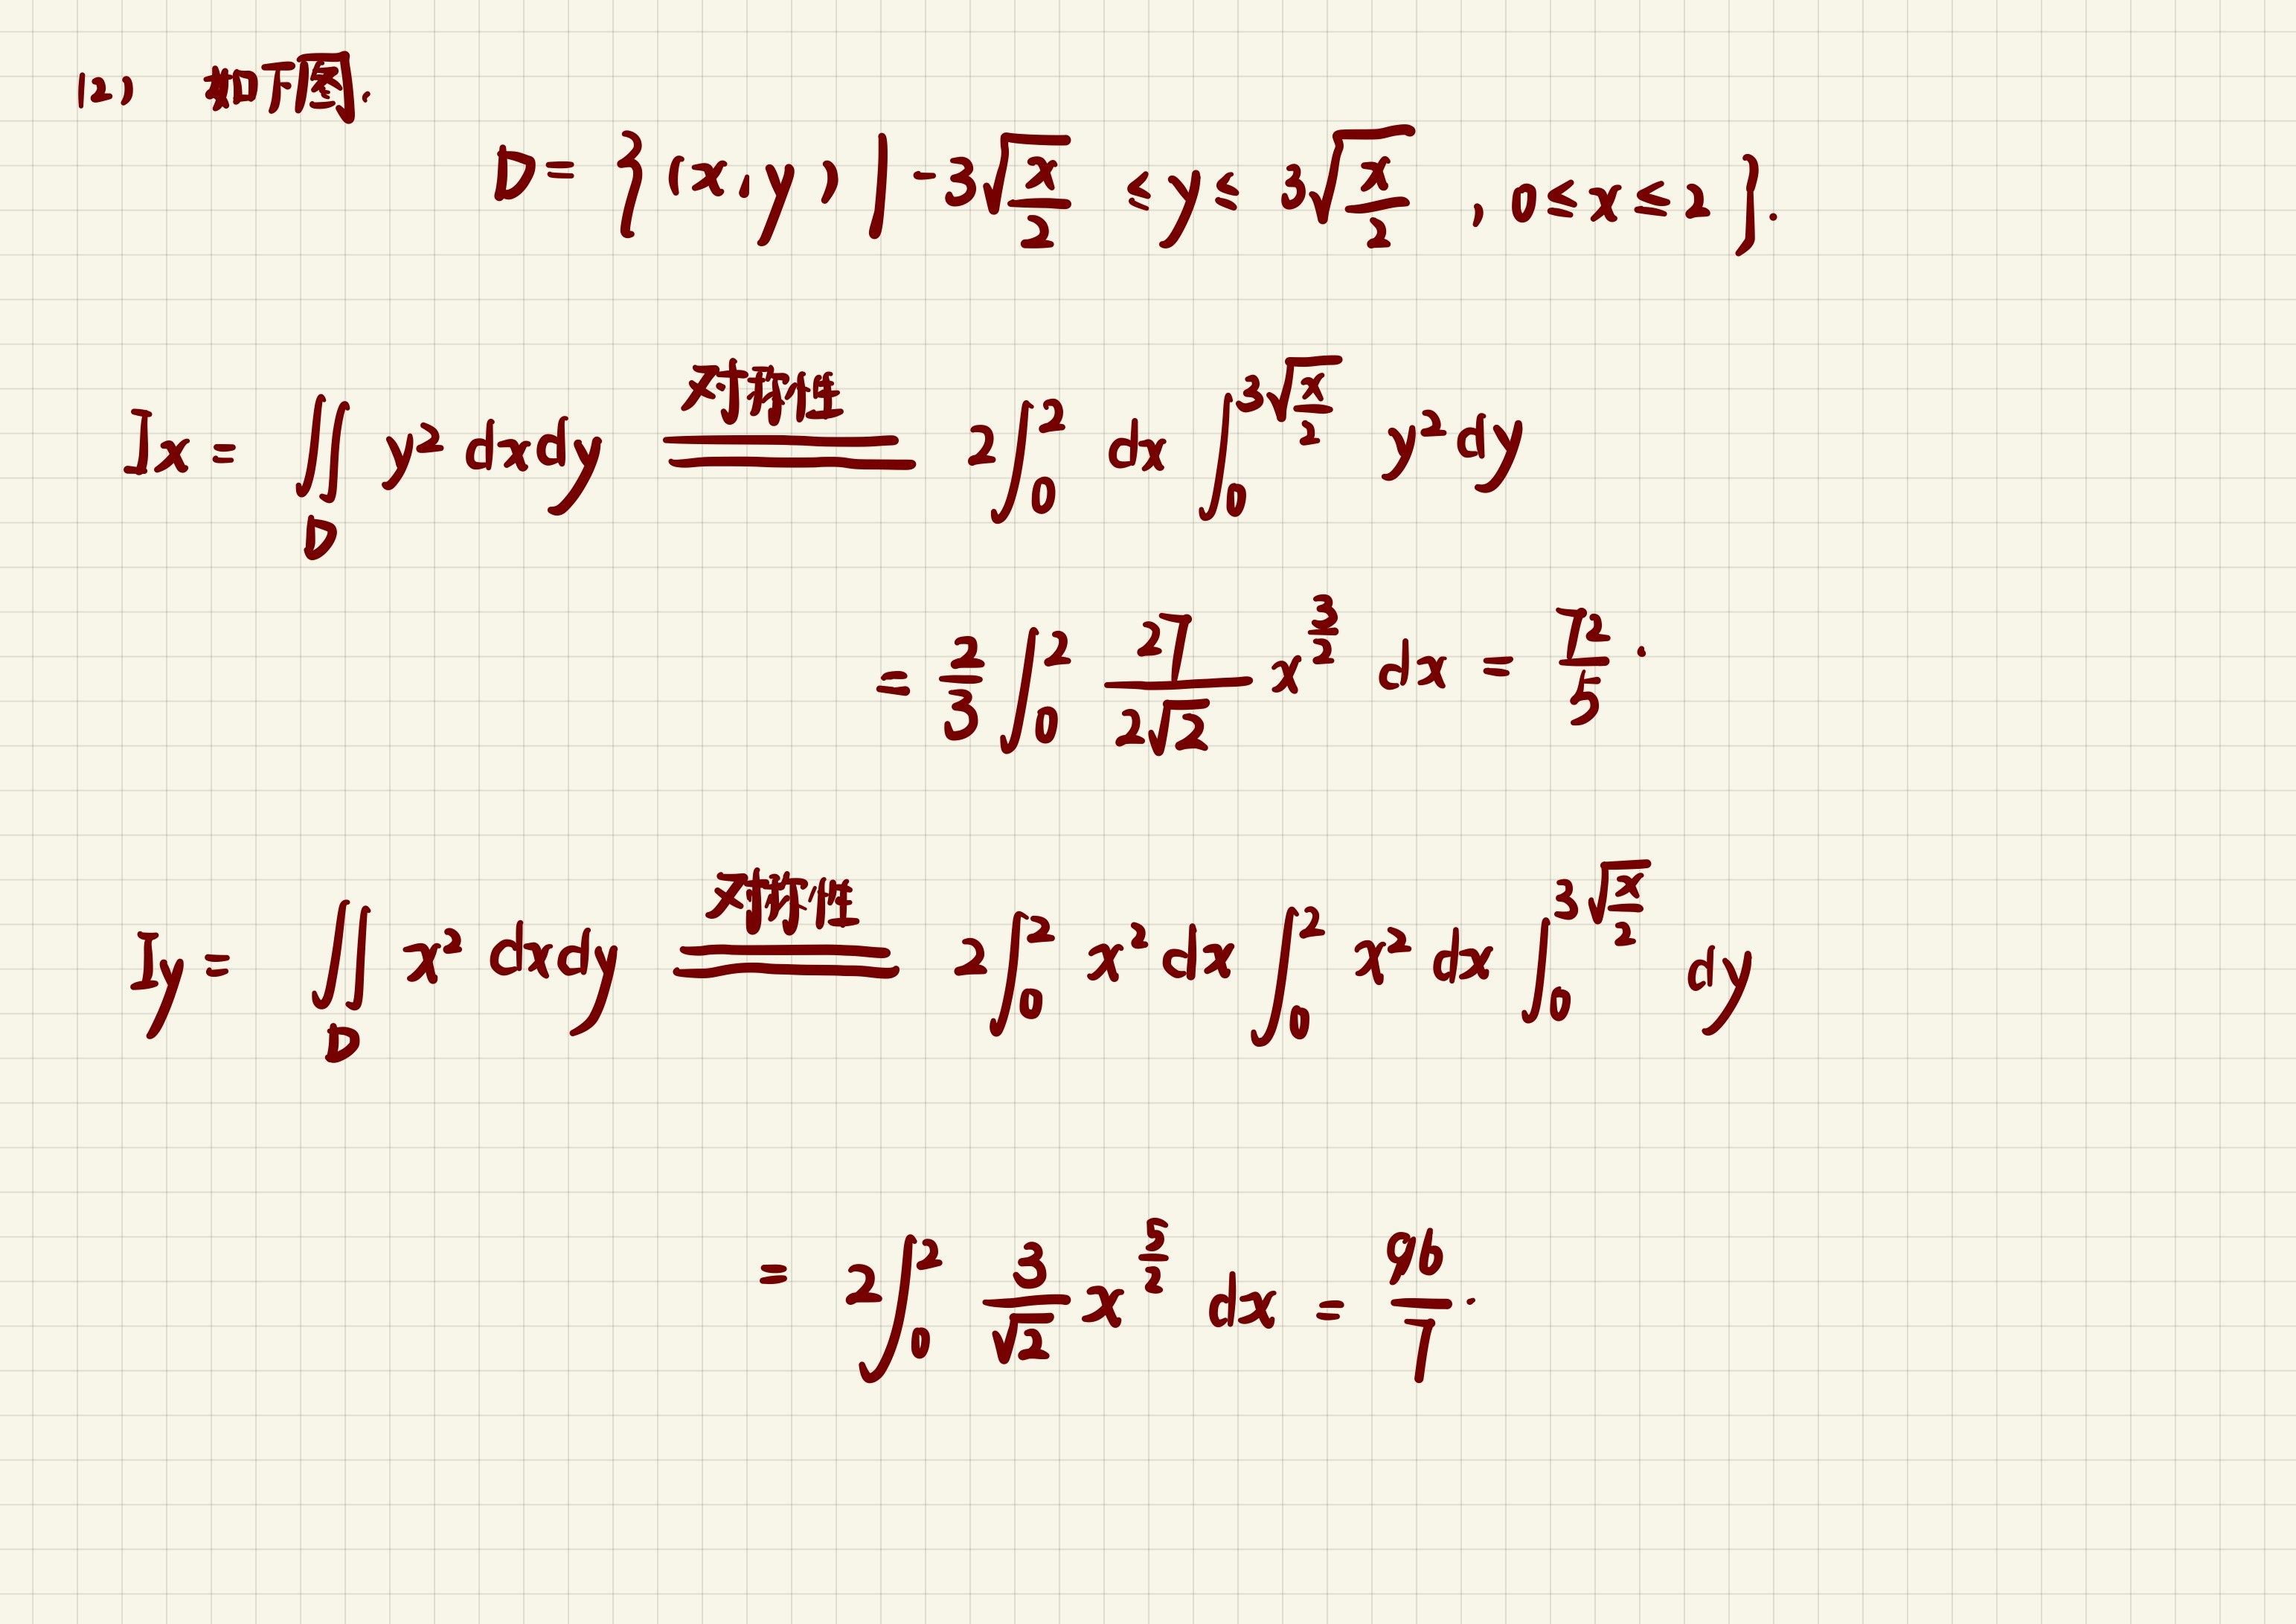 (2) 如下图.
D = { (x, y) | -3√(x/2) ≤ y ≤ 3√(x/2) , 0 ≤ x ≤ 2 }.
Ix = ∬_D y² dxdy =(对称性)= 2∫_0^2 dx ∫_0^{3√(x/2)} y² dy
= 2/3 ∫_0^2 27/(2√2) x^{3/2} dx = 72/5 .
Iy = ∬_D x² dxdy =(对称性)= 2∫_0^2 x² dx ∫_0^2 x² dx ∫_0^{3√(x/2)} dy
= 2∫_0^2 3/√2 x^{5/2} dx = 96/7 .